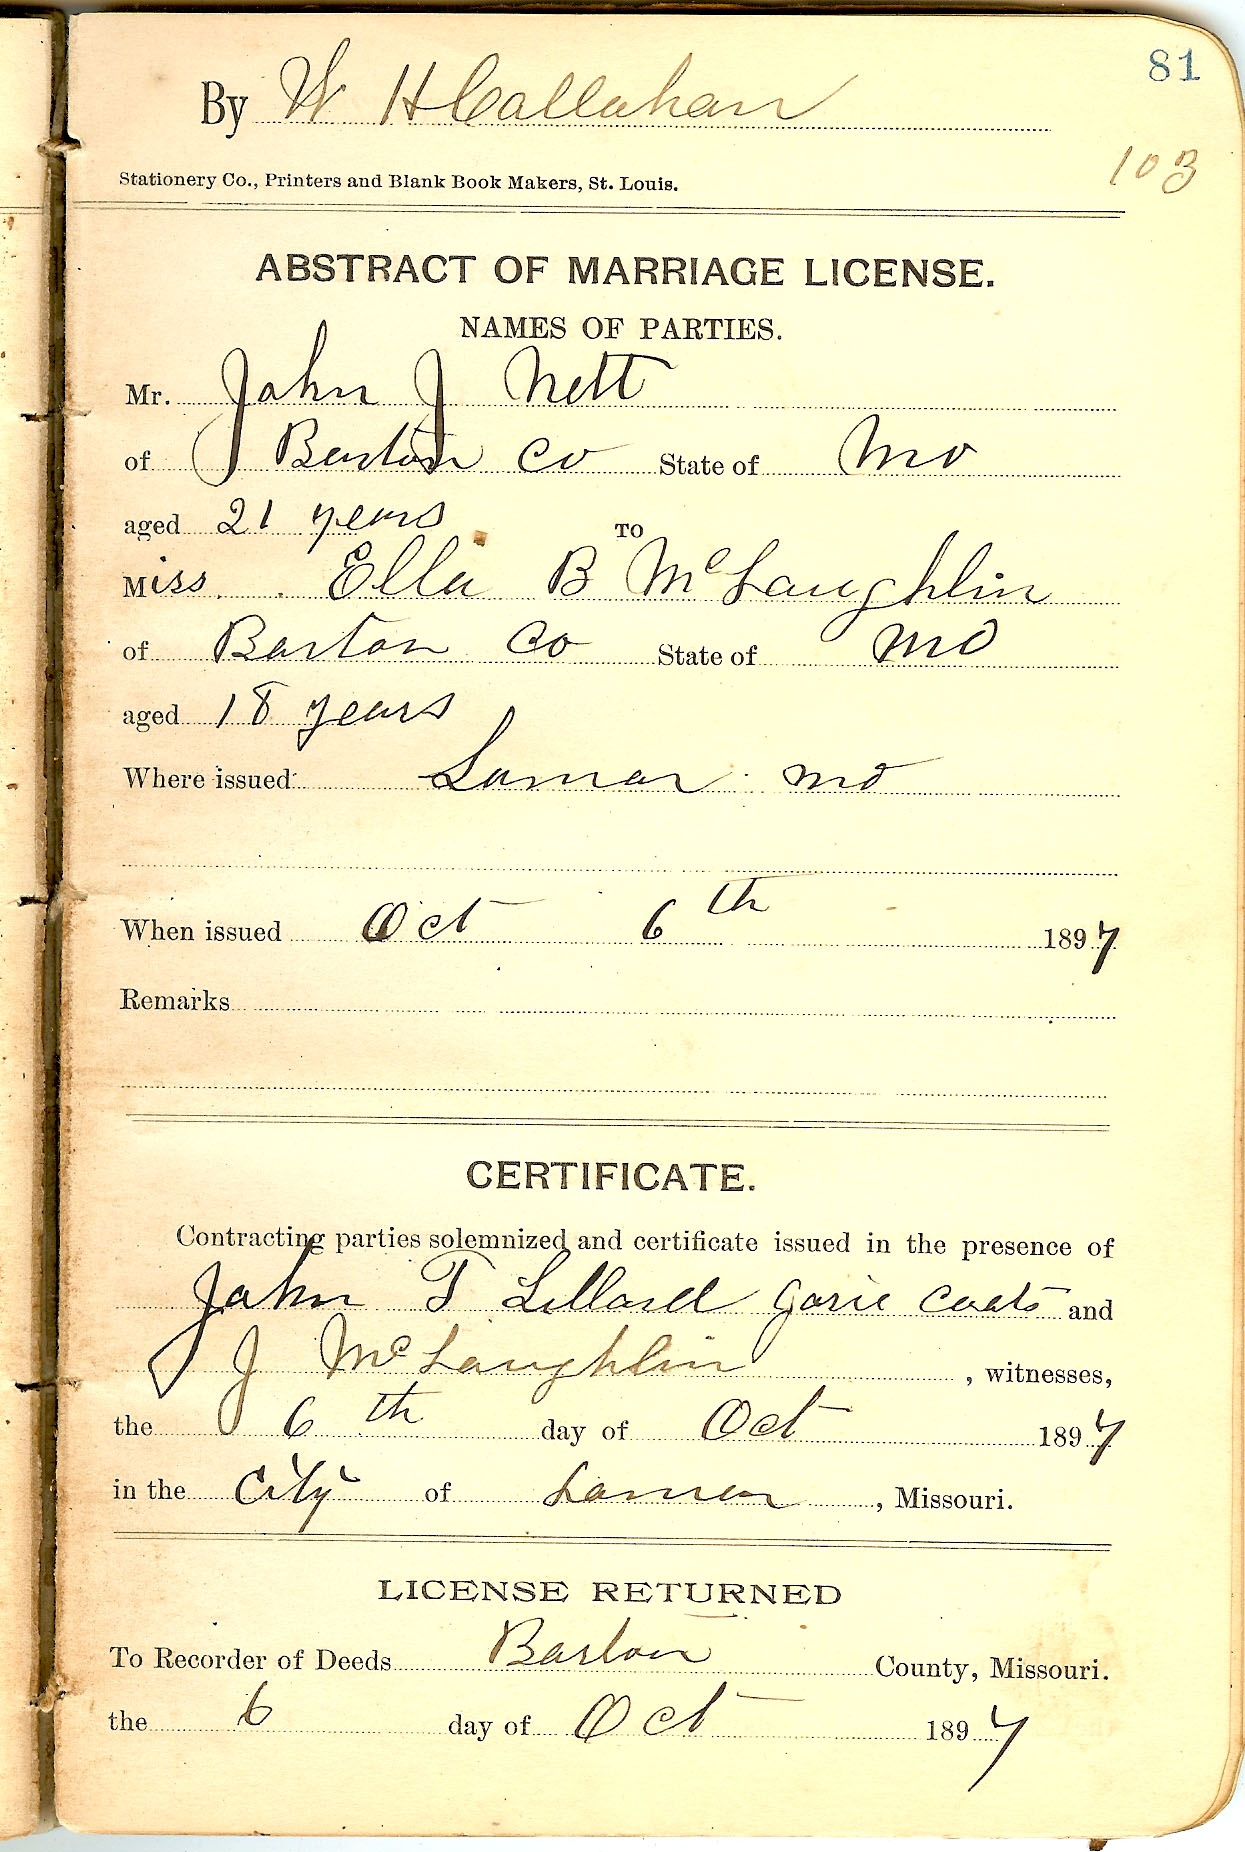 81
By W H Callahan
103
Stationery Co., Printers and Blank Book Makers, St. Louis.
ABSTRACT OF MARRIAGE LICENSE.
NAMES OF PARTIES.
Mr. John J Nett
of Barton Co State of Mo
aged 21 years TO
Miss Ella B McLaughlin
of Barton Co State of Mo
aged 18 years
Where issued Lamar Mo
When issued Oct 6th 1897
Remarks
CERTIFICATE.
Contracting parties solemnized and certificate issued in the presence of
John T Lillard Josie Coats and
J McLaughlin, witnesses,
the 6th day of Oct 1897
in the City of Lamar, Missouri.
LICENSE RETURNED
To Recorder of Deeds Barton County, Missouri.
the 6 day of Oct 1897